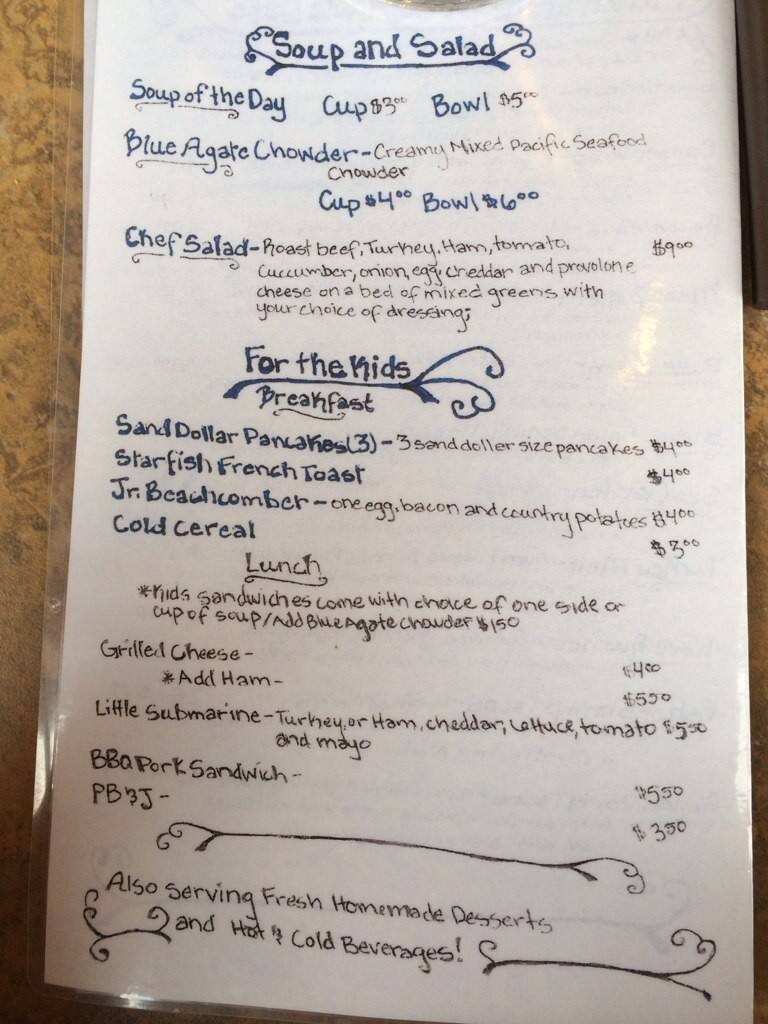 Soup and Salad
Soup of the Day Cup $3.00 Bowl $5.00
Blue Agate Chowder - Creamy Mixed Pacific Seafood
Chowder
Cup $4.00 Bowl $6.00
Chef Salad - Roast beef, Turkey, Ham, tomato, $9.00
Cuccumber, onion, egg, cheddar and provolone
cheese on a bed of mixed greens with
your choice of dressing;
For the Kids
Breakfast
Sand Dollar Pancakes (3) - 3 sand doller size pancakes $4.00
Starfish French Toast $4.00
Jr. Beachcomber - one egg, bacon and country potatoes $4.00
Cold Cereal $3.00
Lunch
*Kids sandwiches come with choice of one side or
cup of soup/Add Blue Agate Chowder $1.50
Grilled Cheese - $4.00
*Add Ham - $5.50
Little Submarine - Turkey, or Ham, cheddar, lettuce, tomato $5.50
and mayo
BBQ Pork Sandwich - $5.50
PB & J - $3.50
Also serving Fresh Homemade Desserts
and Hot & Cold Beverages!